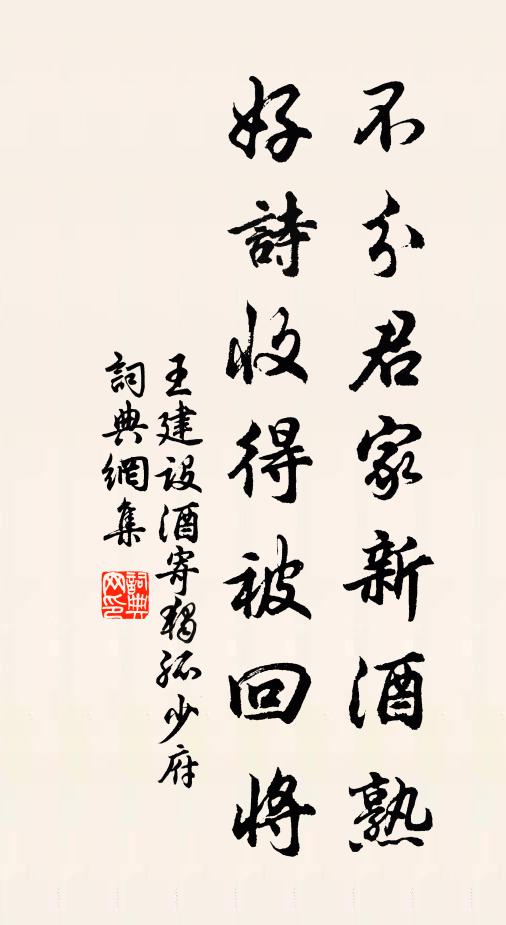 不分君家新酒熟
好詩收得被回將
王建設酒寄獨孤少府
詞典網集
詞典網印